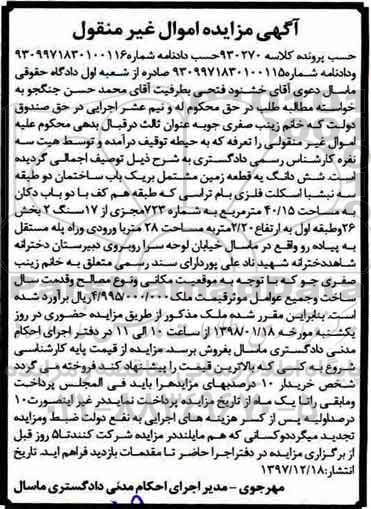 آگهی مزایده اموال غیر منقول
حسب پرونده کلاسه ۹۳۰۲۷۰حسب دادنامه شماره۹۳۰۹۹۷۱۸۳۰۱۰۰۱۱۶
ودادنامه شماره۹۳۰۹۹۷۱۸۳۰۱۰۰۱۱۵ صادره از شعبه اول دادگاه حقوقی
ماسال دعوی آقای خشنود فتحی بطرفیت آقای محمد حسن جنگجو به
خواسته مطالبه طلب در حق محکوم له و نیم عشر اجرایی در حق صندوق
دولت که خانم زینب صفری جوبه عنوان ثالث درقبال بدهی محکوم علیه
اموال غیر منقولی را تعرفه که به حیطه توقیف درآمده و توسط هیت سه
نفره کارشناس رسمی دادگستری به شرح ذیل توصیف اجمالی گردیده
است. شش دانگ یه قطعه زمین مشتمل بریک باب ساختمان دو طبقه
به نبشبا اسکلت فلزی بام تراسی که طبقه هم کف با دو باب دکان
به مساحت ۴۰/۱۵ مترمربع به شماره ۷۲۳مجزی از ۱۷سنگ ۲ بخش
۲۶وطبقه اول به ارتفاع ۲/۲۰متربه مساحت ۲۸ متربا ورودی وراه پله مستقل
به پیاده رو واقع در ماسال خیابان لوحه سرا روبروی دبیرستان دخترانه
شاهددخترانه شهید ناد علی پوردارای سند رسمی متعلق به خانم زینب
صفری جو که با توجه به موقعیت مکانی ونوع مصالح وقدمت سال
ساخت وجمیع عوامل موثرقیمت ملک۴/۹۹۵/۰۰۰/۰۰۰ریال برآورد شده
است. بنابراین مقرر شده ملک مذکور از طریق مزایده حضوری در روز
یکشنبه مورخه ۱۳۹۸/۰۱/۱۸ از ساعت ۱۰ الی ۱۱ در دفتر اجرای احکام
مدنی دادگستری ماسال بفروش برسد. مزایده از قیمت پایه کارشناسی
شروع به کسی که بالاترین قیمت را پیشنهاد کند فروخته می گردد
شخص خریدار ۱۰ درصدبهای مزایدهرا باید فی المجلس پرداخت
ومابقی راتا یک ماه از تاریخ مزایده پرداخت نمایددر غیر اینصورت۱۰
درصداولیه پس از کسر هزینه های اجرایی به نفع دولت ضبط ومزایده
تجدید میگرددوکسانی که هم مایلنددر مزایده شرکت کنندتا۵ روز قبل
از برگزاری مزایده در دفتراجرا حاضر تا مقدمات بازدید فراهم اید. تاریخ
انتشار:۱۳۹۷/۱۲/۱۸
مهرجوی – مدیر اجرای احکام مدنی دادگستری ماسال